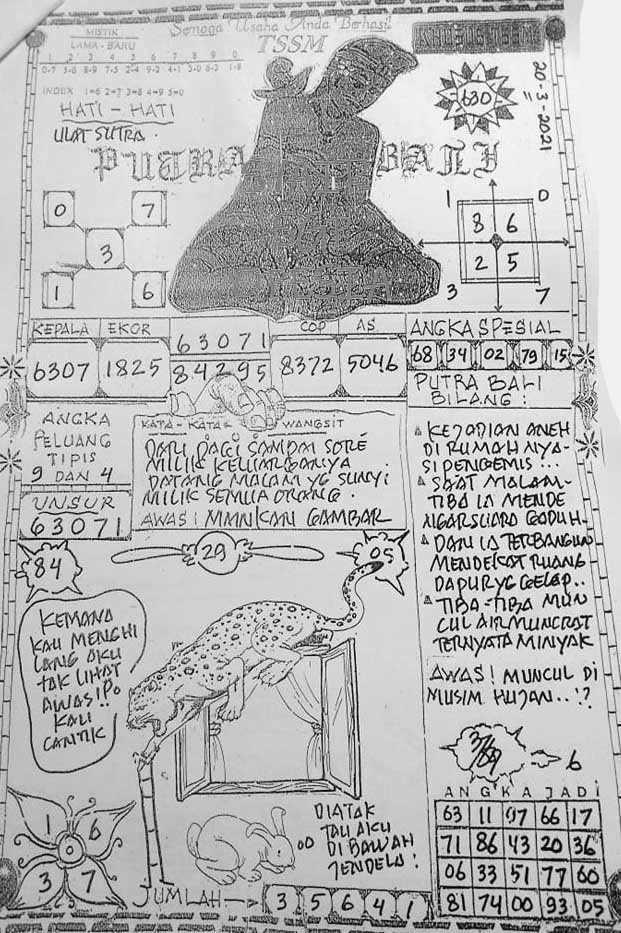 Semoga Usaha Anda Berhasil
TSSM
MISTIK
LAMA - BARU
1 2 3 4 5 6 7 8 9 0
0-7 5-8 8-9 7-5 2-4 9-2 4-1 3-0 6-3 1-8
INDEX 1=6 2=7 3=8 4=9 5=0
HATI - HATI
ULAT SUTRA.
630
20-3-2021
PUTRA BALI
0 7
3
1 6
1 0
8 6
2 5
3 7
KEPALA EKOR
6307 1825
63071
84295
COP AS
8372 5046
ANGKA SPESIAL
68 34 02 79 15
ANGKA
PELUANG
TIPIS
9 DAN 4
UNSUR
63071
KATA - KATA = WANGSIT
DARI PAGI SAMPAI SORE
MILIK KELUARGANYA
DATANG MALAM YG SUNYI
MILIK SEMUA ORANG.
AWAS: MAINKAN GAMBAR
PUTRA BALI
BILANG :
KEJADIAN ANEH
DI RUMAH NYA-
SI PENGEMIS ...
SAAT MALAM-
TIBA IA MENDE
NGAR SUARA GADUH.
DAN IA TERBANGUN
MENDEKAT RUANG
DAPUR YG GELAP..
TIBA-TIBA MUN
CUL AIR MUNCRAT
TERNYATA MINYAK
AWAS! MUNCUL DI
MUSIM HUJAN..!?
84
29
05
KEMANA
KAU MENGHI
LANG AKU
TAK LIHAT
KAU
CANTIK
TAU AKU
DI BAWAH
JENDELA!
1 6
0
3 7
JUMLAH
3 5 6 4 1
6
ANGKA JADI
63 11 97 66 17
71 86 43 20 36
06 33 51 77 60
81 74 00 93 05